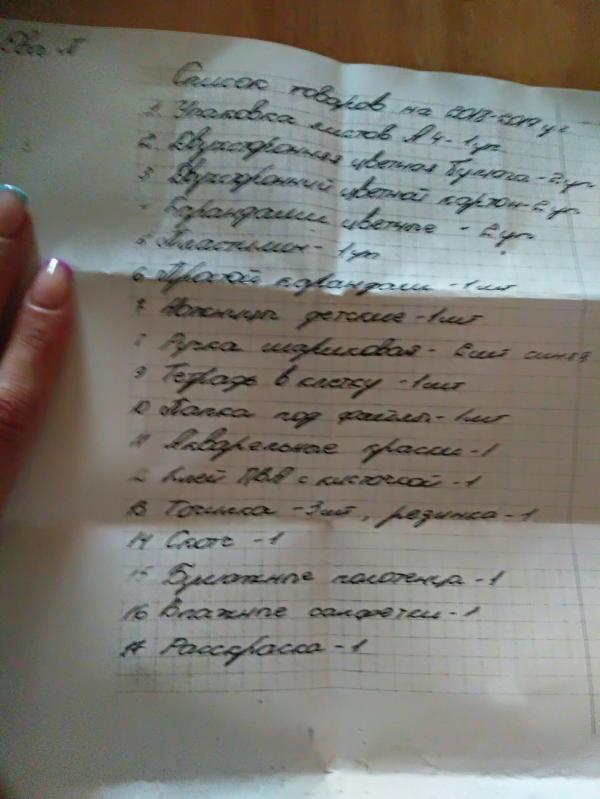 Список товаров на 2018-2019 уг
1. Упаковка листов А4 - 1 уп
2. Двухсторонняя цветная бумага - 2 уп
3 Двухсторонний цветной картон - 2 уп
4 Карандаши цветные - 2 уп
5 Пластилин - 1 уп
6 Простой карандаш - 1 шт
7 Ножницы детские - 1 шт
8 Ручка шариковая - 2 шт синяя
9 Тетрадь в клетку - 1 шт
10 Папка под файлы - 1 шт
11 Акварельные краски - 1
2 Клей ПВА с кисточкой - 1
13 Точилка - 3 шт, резинка - 1
14 Скотч - 1
15 Бумажные полотенца - 1
16 Влажные салфетки - 1
17 Раскраска - 1